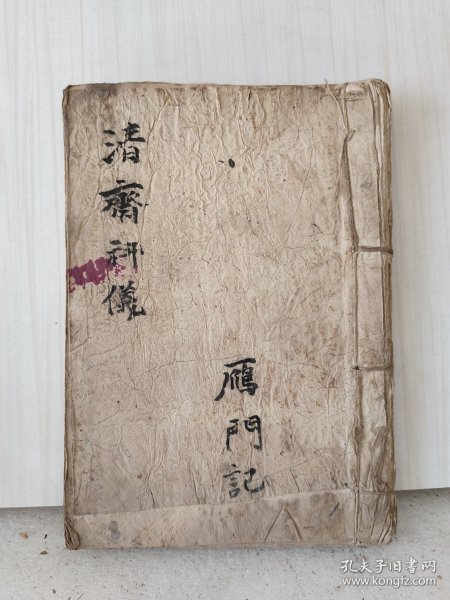 清齋科儀
雁門記
孔夫子旧书网
www.kongfz.com